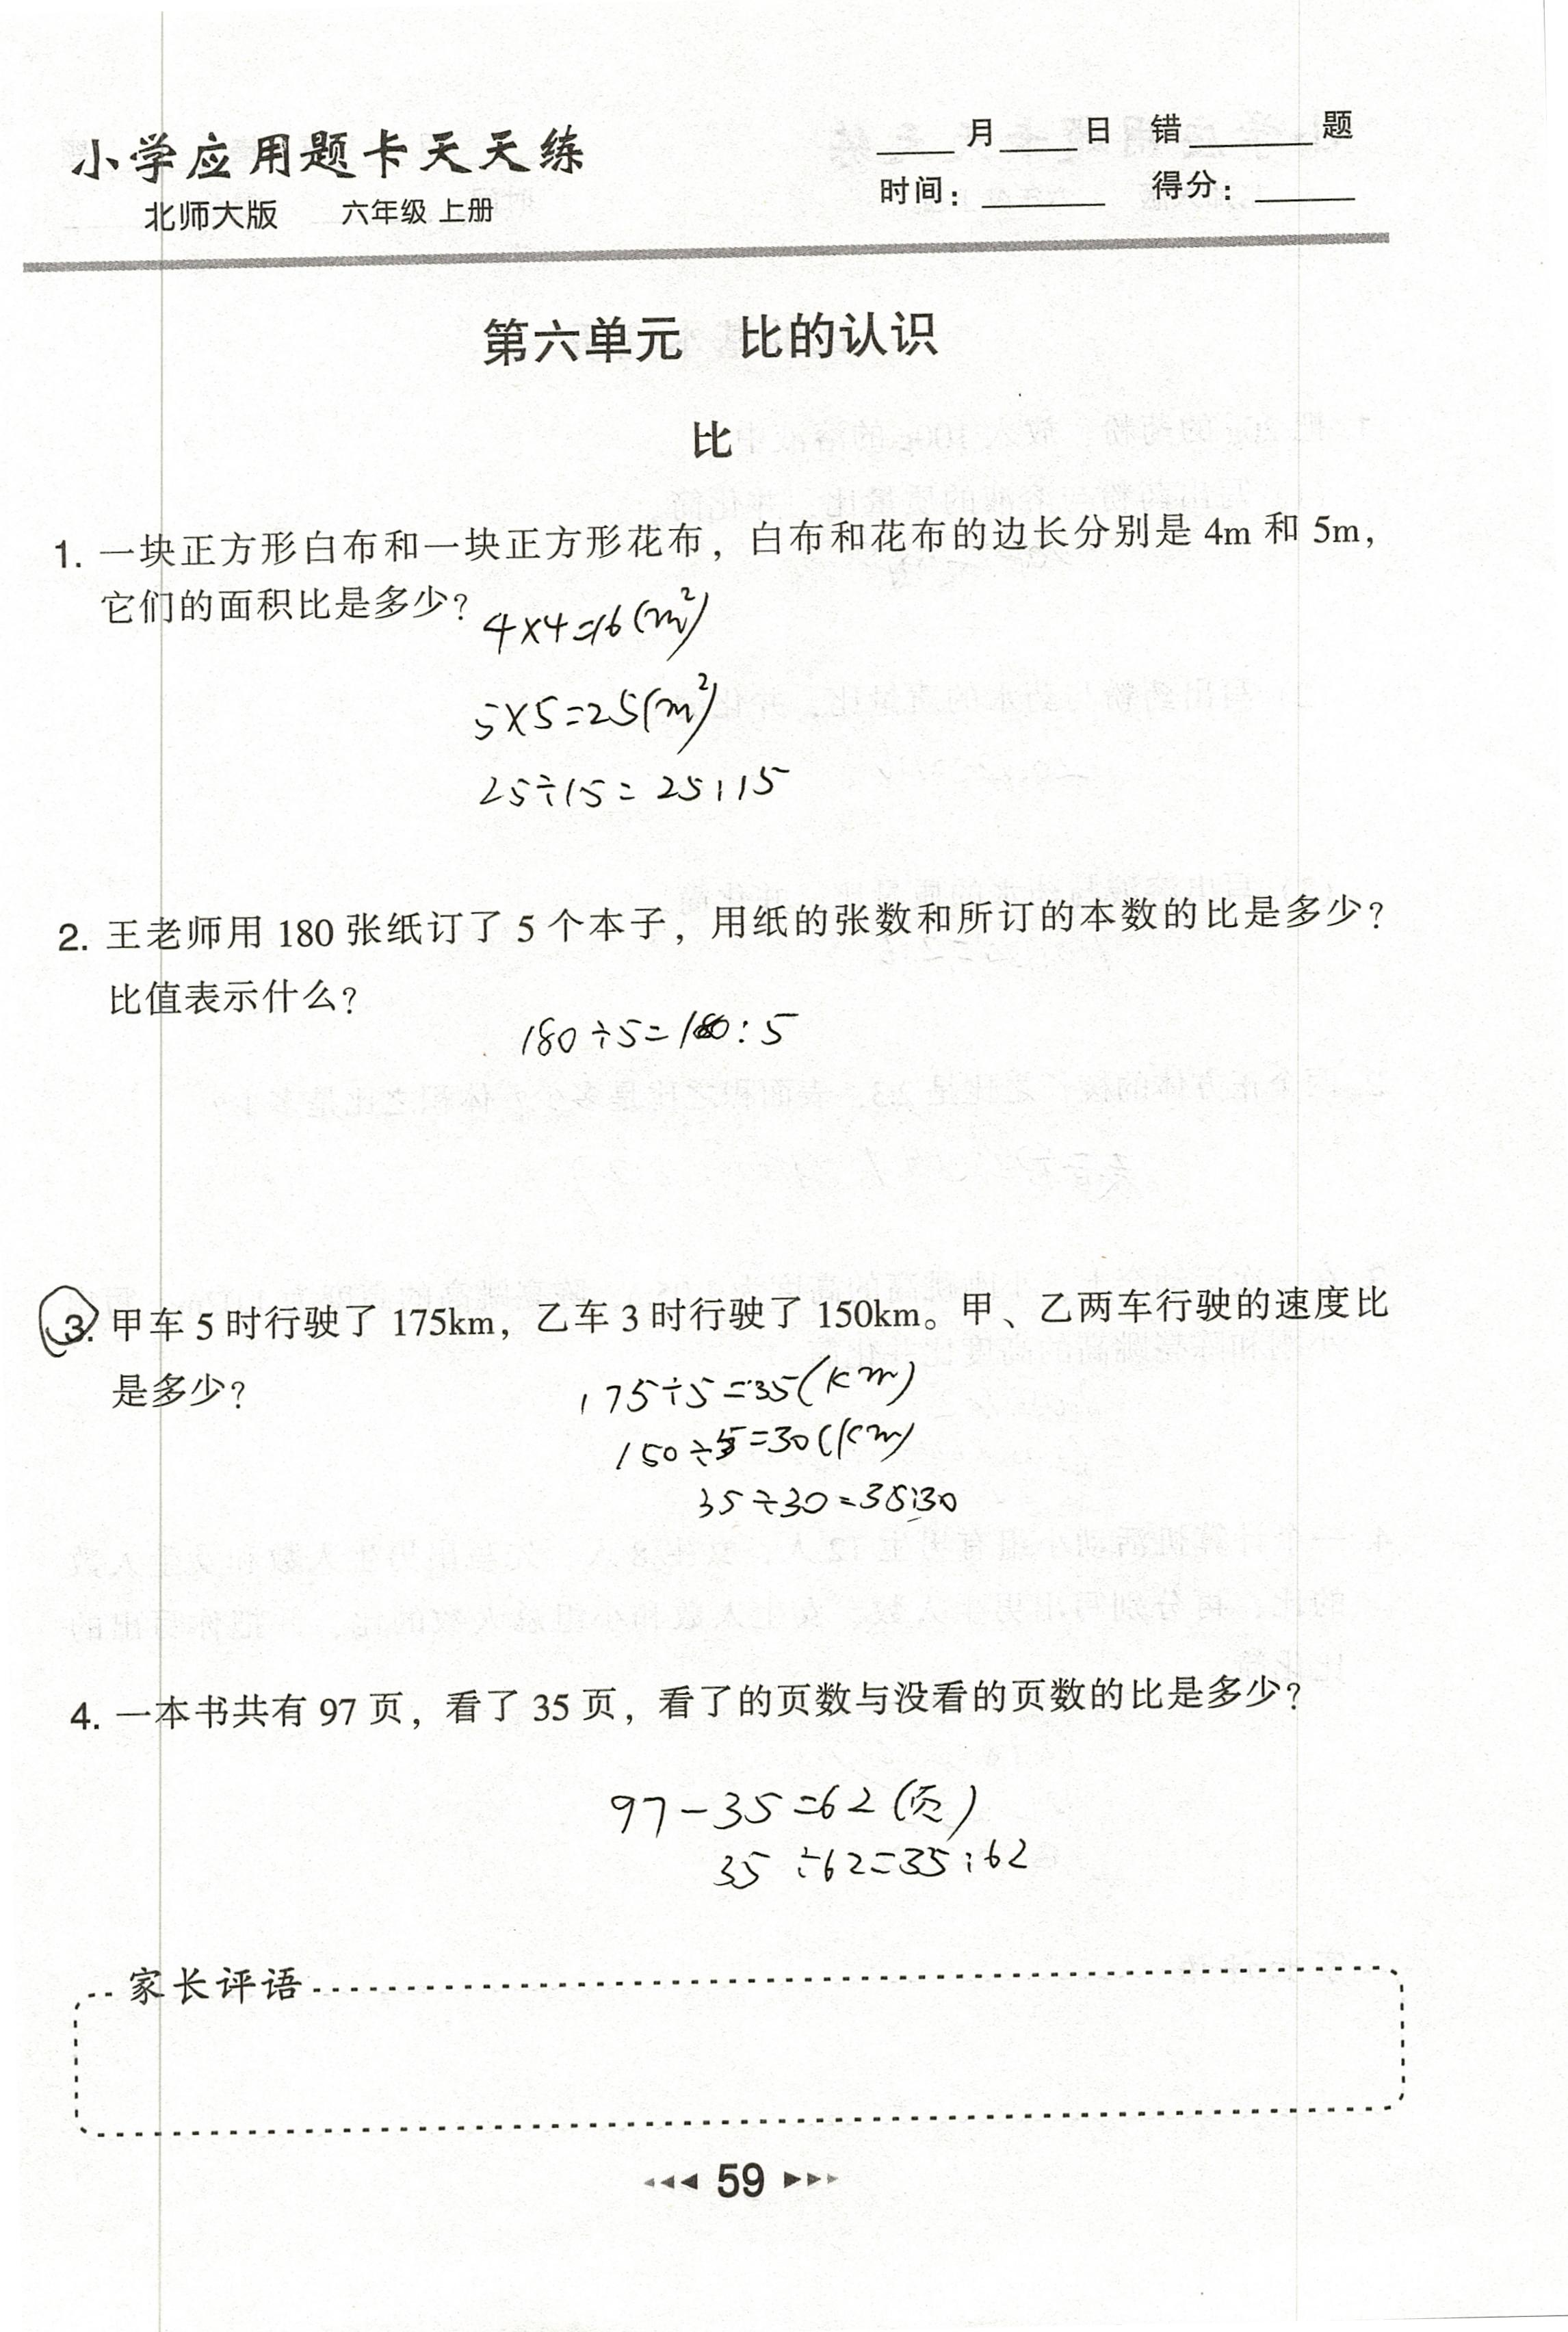 小学应用题卡天天练
____月____日 错______题
北师大版 六年级 上册
时间：______ 得分：_____
第六单元 比的认识
比
1. 一块正方形白布和一块正方形花布，白布和花布的边长分别是 4m 和 5m，
它们的面积比是多少？
4×4=16(m²)
5×5=25(m²)
25÷15=25:15
2. 王老师用 180 张纸订了 5 个本子，用纸的张数和所订的本数的比是多少？
比值表示什么？
180÷5=180:5
3. 甲车 5 时行驶了 175km，乙车 3 时行驶了 150km。甲、乙两车行驶的速度比
是多少？
175÷5=35(km)
150÷5=30(km)
35÷30=35:30
4. 一本书共有 97 页，看了 35 页，看了的页数与没看的页数的比是多少？
97-35=62(页)
35÷62=35:62
家长评语
59